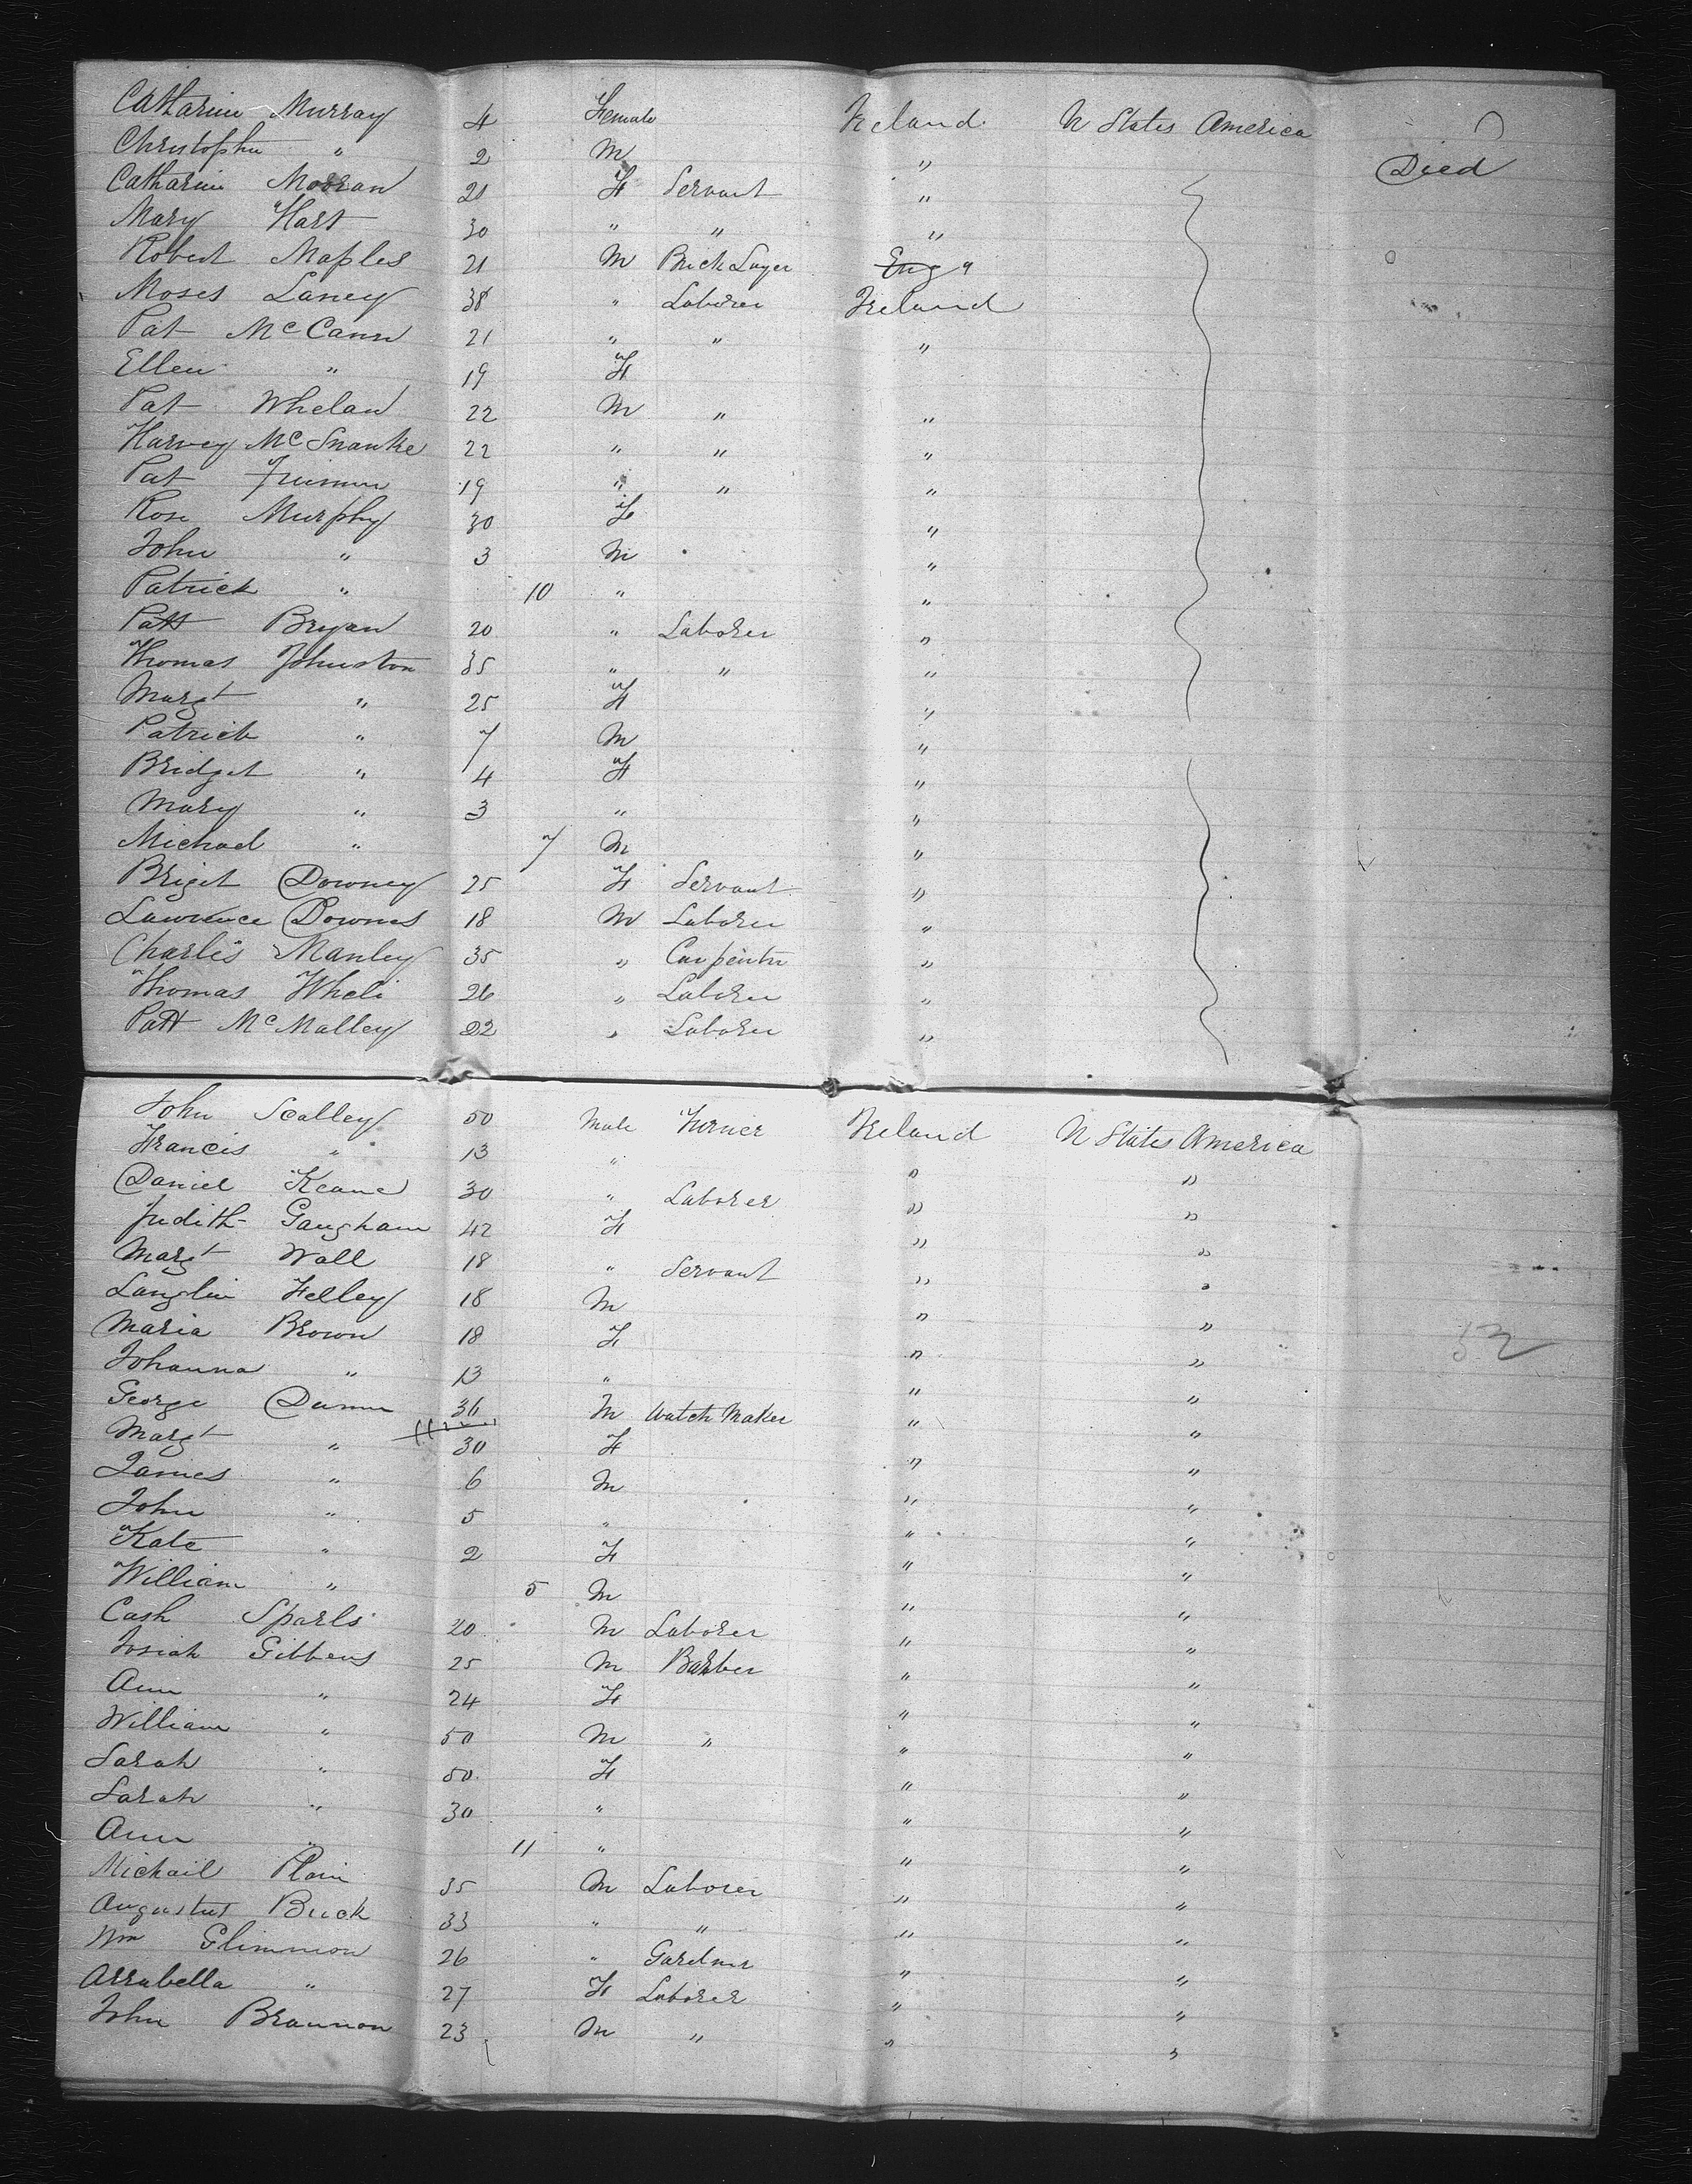 Catharine Murray 4 Female Ireland U States America
Christopher " 2 M " Died
Catharine Mooran 21 F Servant "
Mary Hart 30 " " "
Robert Maples 21 M Brick Layer Eng "
Moses Laney 38 " Laborer Ireland
Pat McCann 21 " " "
Ellen " 19 F
Pat Whelan 22 M " "
Harvey 22 " " "
Pat 19 " " "
Rose Murphy 30 F "
John " 3 M "
Patrick " 10 " "
Patt Bryan 20 " Laborer "
Thomas Johnston 35 " " "
Margt " 25 F "
Patrick " 7 M "
Bridget " 4 F "
Mary " 3 " "
Michael " 7 M "
Briget Downey 25 F Servant "
Lawrence Downes 18 M Laborer "
Charles Manley 35 " Carpenter "
Thomas 26 " Laborer "
Patt McMalley 22 " Laborer "
John Scalley 50 Male Turner Ireland U States America
Francis " 13 " " "
Daniel Keane 30 " Laborer " "
Judith Gaugham 42 F " "
Margt Wall 18 " Servant " "
Felley 18 M " "
Maria Brown 18 F " " 52
Johanna " 13 " " "
George 36 M Watch Maker " "
Margt " 30 F " "
James " 6 M " "
John " 5 " " "
Kate " 2 F " "
William " 5 M " "
Cash Sparls 20 M Laborer " "
Josiah Gibbens 25 M Barber " "
Ann " 24 F " "
William " 50 M " " "
Sarah " 50 F " "
Sarah " 30 " " "
Ann " 11 " " "
Michail Plain 35 M Laborer " "
Augustus Buck 33 " " " "
Wm Glimmon 26 " Gardner " "
Arrabella " 27 F Laborer " "
John Brannon 23 M " " "